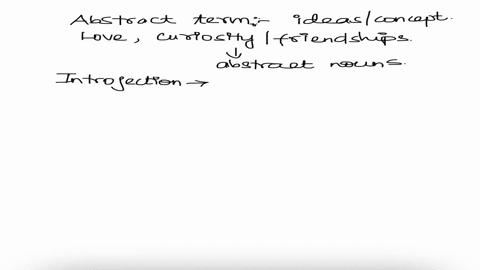 Abstract term:- ideas/concept.
Love, curiosity/friendships.
↓
abstract nouns.
Introjection →